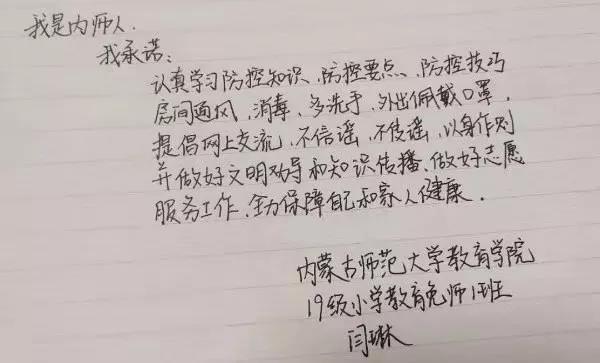 我是内师人.
我承诺:
认真学习防控知识、防控要点、防控技巧
房间通风,消毒,多洗手,外出佩戴口罩,
提倡网上交流,不信谣,不传谣,以身作则
并做好文明劝导和知识传播、做好志愿
服务工作、全力保障自己和家人健康.
内蒙古师范大学教育学院
19级小学教育免师1班
闫琳